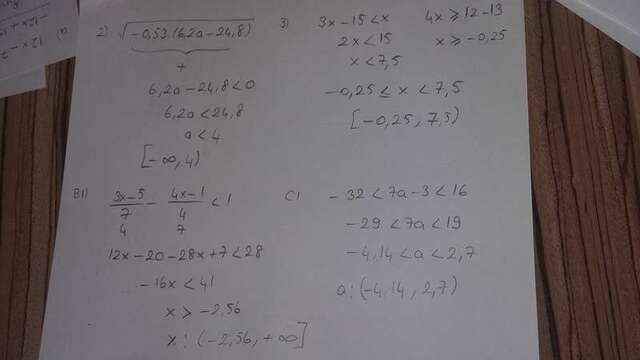 2) √-0,53.(6,2a-24,8)
+
6,2a-24,8<0
6,2a<24,8
a<4
[-∞,4)
3) 3x-15<x 4x⩾12-13
2x<15 x⩾-0,25
x<7,5
-0,25≤x<7,5
[-0,25, 7,5)
B1) 3x-5/7 - 4x-1/4 <1
4 7
12x-20-28x+7<28
-16x<41
x>-2,56
x:(-2,56,+∞]
C1 -32<7a-3<16
-29<7a<19
-4,14<a<2,7
a:(-4,14, 2,7)